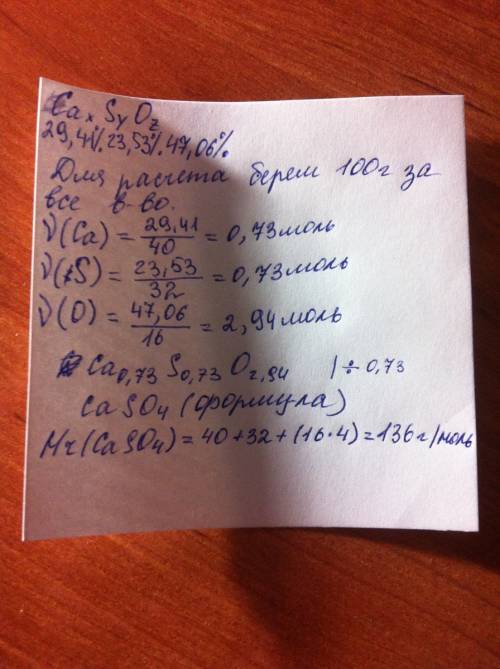 CaxSyOz
29,41% 23,53% 47,06%
Для расчета берем 100г за
все в-во.
ν(Ca) = 29,41/40 = 0,73моль
ν(S) = 23,53/32 = 0,73моль
ν(O) = 47,06/16 = 2,94моль
Ca0,73 S0,73 O2,94 | ÷ 0,73
CaSO4 (формула)
Mr(CaSO4) = 40+32+(16·4)=136г/моль